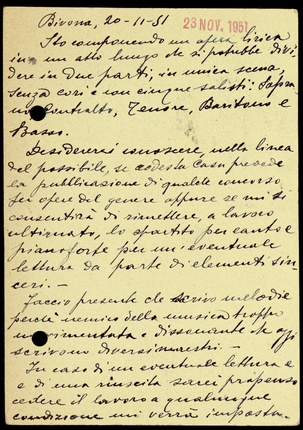 Bivona, 20-11-51
23 NOV. 1951
Sto componendo un'opera lirica
in un atto lungo che si potrebbe divi
dere in due parti, in unica scena,
senza cori e con cinque solisti: Sopra
no, Contralto, Tenore, Baritono e
Basso.
Desidererei conoscere, nella linea
del possibile, se codesta Casa prevede
la pubblicazione di qualche concorso
per opere del genere oppure se mi si
consentirà di rimettere, a lavoro
ultimato, lo spartito per canto e
pianoforte per un'eventuale
lettura da parte di elementi sin
ceri.-
Faccio presente che scrivo melodie
perché nemico della musica troppo
movimentata e dissonante che oggi
scrivono diversi maestri.-
In caso di un'eventuale lettura e
e di una riuscita sarei propenso
cedere il lavoro a qualunque
condizione mi verrà imposta.-